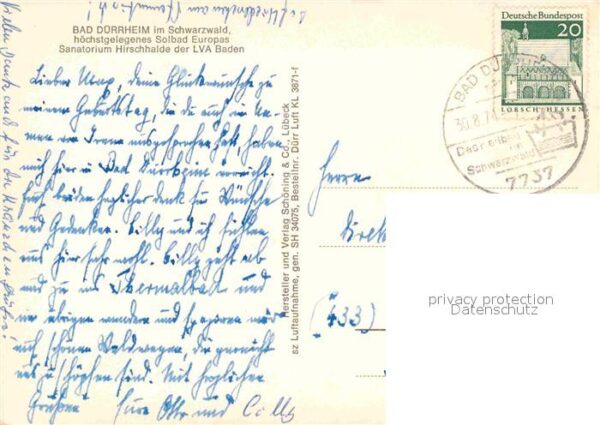 BAD DÜRRHEIM im Schwarzwald,
höchstgelegenes Solbad Europas
Sanatorium Hirschhalde der LVA Baden
Lieber Max, deine Glückwünsche zu
meinem Geburtstag, die du auch im Na-
men von Irene ausgesprochen hast, haben
mich hier in Bad Dürrheim erreicht.
Habt beiden herzlichen Dank für Wünsche
und Gedenken. Cilly und ich fühlen
uns hier sehr wohl. Cilly geht ab
und zu ins Thermalbad und
im übrigen wandern und spazieren wir
auf schönen Waldwegen, die garnicht
auszuschöpfen sind. Mit herzlichen
Grüßen Eure Otto und Cilly
Vielen Dank auch für die
Hersteller und Verlag Schöning & Co., Lübeck
sz Luftaufnahme, gen. SH 34075, Bestellnr. Dürr Luft KL 3671-f
Deutsche Bundespost
20
LORSCH/HESSEN
BAD DÜRRHEIM
30.8.74
Das Heilbad
im
Schwarzwald
7737
Herrn
Direk
(433)
privacy protection
Datenschutz